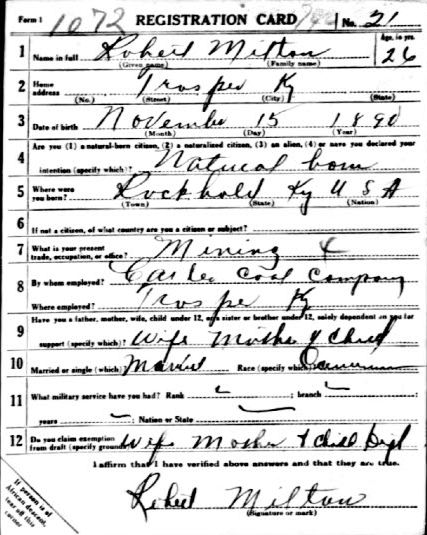 Form 1 1072 REGISTRATION CARD No. 21
1 Name in full Robert Milton Age, in yrs. 26
(Given name) (Family name)
2 Home address Trosper Ky
(No.) (Street) (City) (State)
3 Date of birth November 15 1890
(Month) (Day) (Year)
4 Are you (1) a natural-born citizen, (2) a naturalized citizen, (3) an alien, (4) or have you declared your
intention (specify which)? Natural born
5 Where were you born? Rockhold Ky U S A
(Town) (State) (Nation)
6 If not a citizen, of what country are you a citizen or subject?
7 What is your present trade, occupation, or office? Mining
8 By whom employed? Coal Company
Where employed? Trosper Ky
9 Have you a father, mother, wife, child under 12, or a sister or brother under 12, solely dependent on you for
support (specify which)? Wife Mother & Child
10 Married or single (which) Married Race (specify which)
11 What military service have you had? Rank branch
years Nation or State
12 Do you claim exemption from draft (specify grounds) Wife Mother & Child
I affirm that I have verified above answers and that they are true.
Robert Milton
(Signature or mark)
If person is of
African descent,
tear off this
corner.